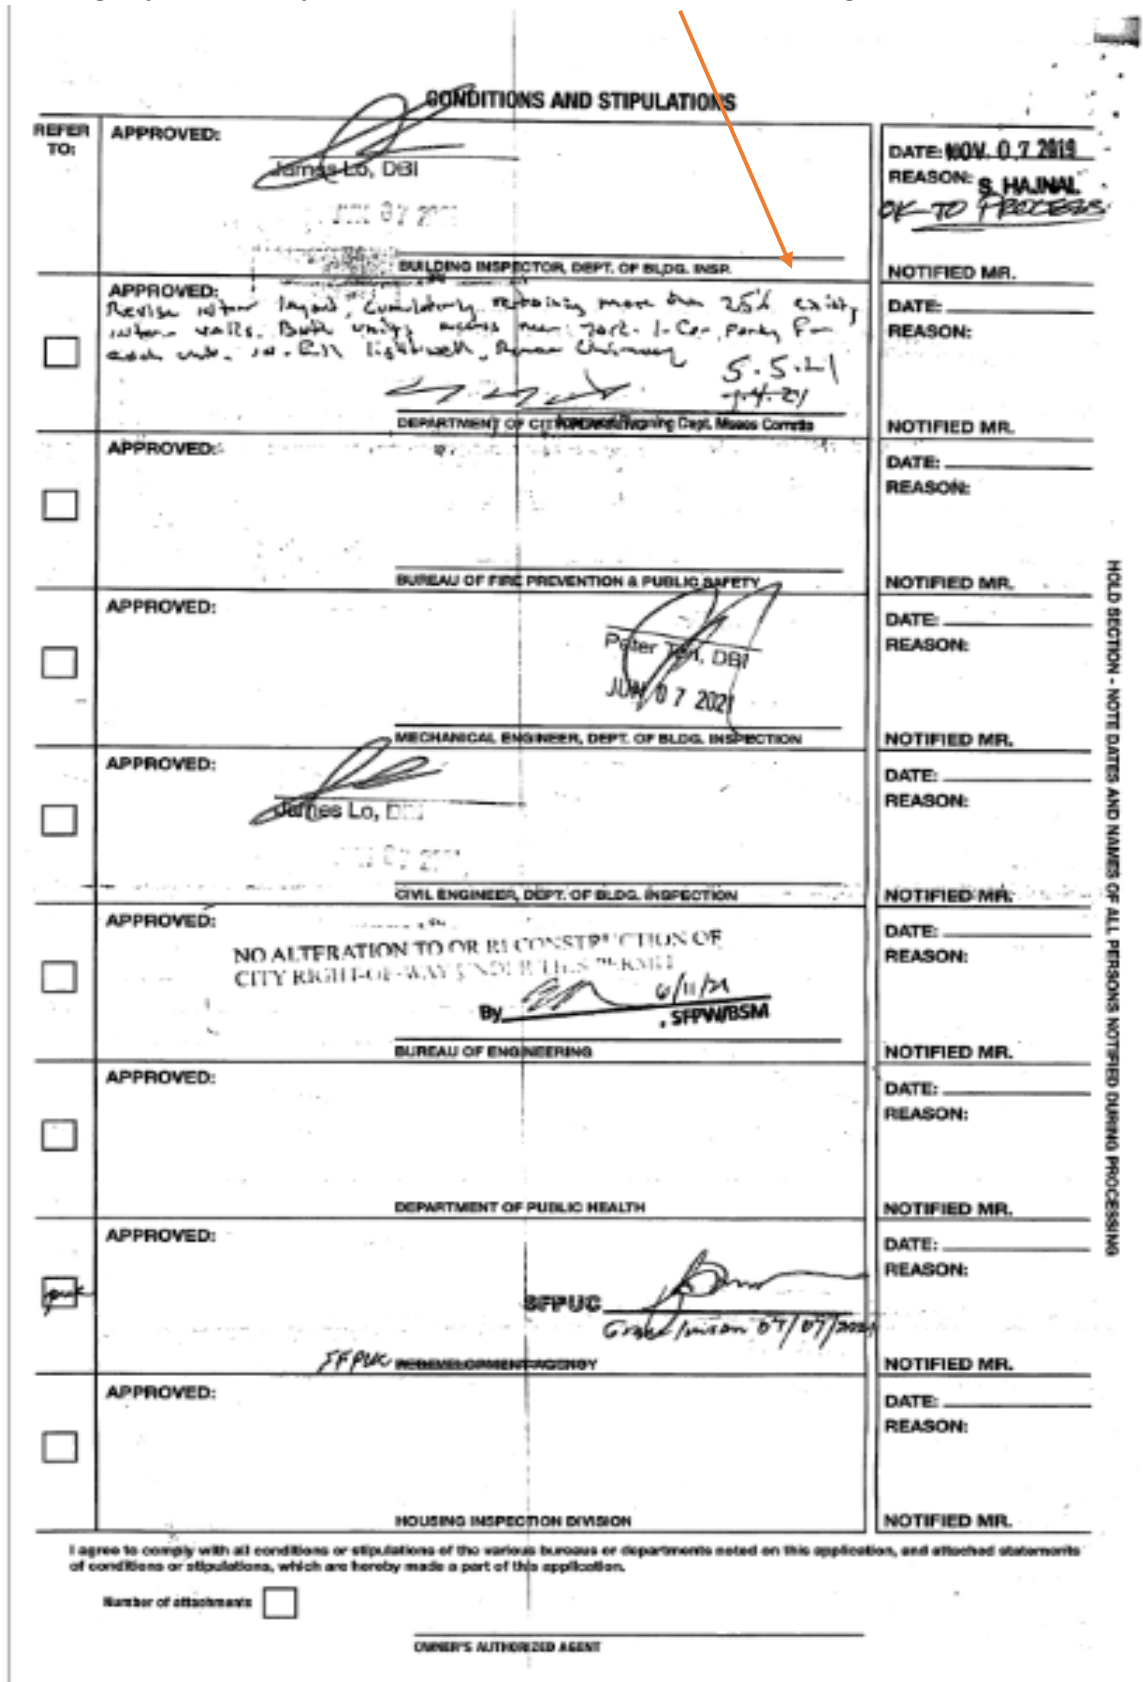 CONDITIONS AND STIPULATIONS
REFER TO:
APPROVED:
James Lo, DBI
BUILDING INSPECTOR, DEPT. OF BLDG. INSP.
DATE: NOV. 07 2019
REASON: S. HAJNAL
OK TO PROCESS
NOTIFIED MR.
APPROVED:
Revise layout, Cumulatively retaining more than 25%
walls. Both units access rear yard. 1-Car Parking For
each unit. in-fill lightwell, Remove Chimney
5.5.21
DEPARTMENT OF CITY
Planning Dept. Moses Corrette
DATE:
REASON:
NOTIFIED MR.
APPROVED:
BUREAU OF FIRE PREVENTION & PUBLIC SAFETY
DATE:
REASON:
NOTIFIED MR.
APPROVED:
Peter Tan, DBI
JUN 07 2021
MECHANICAL ENGINEER, DEPT. OF BLDG. INSPECTION
DATE:
REASON:
NOTIFIED MR.
APPROVED:
James Lo, DBI
CIVIL ENGINEER, DEPT. OF BLDG. INSPECTION
DATE:
REASON:
NOTIFIED MR.
APPROVED:
NO ALTERATION TO OR RECONSTRUCTION OF
CITY RIGHT-OF-WAY UNDER THIS PERMIT
By 6/11/21
, SFPW/BSM
BUREAU OF ENGINEERING
DATE:
REASON:
NOTIFIED MR.
APPROVED:
DEPARTMENT OF PUBLIC HEALTH
DATE:
REASON:
NOTIFIED MR.
puc
APPROVED:
SFPUC
07/07/2021
SFPUC REDEVELOPMENT AGENCY
DATE:
REASON:
NOTIFIED MR.
APPROVED:
HOUSING INSPECTION DIVISION
DATE:
REASON:
NOTIFIED MR.
HOLD SECTION - NOTE DATES AND NAMES OF ALL PERSONS NOTIFIED DURING PROCESSING
I agree to comply with all conditions or stipulations of the various bureaus or departments noted on this application, and attached statements
of conditions or stipulations, which are hereby made a part of this application.
Number of attachments
OWNER'S AUTHORIZED AGENT